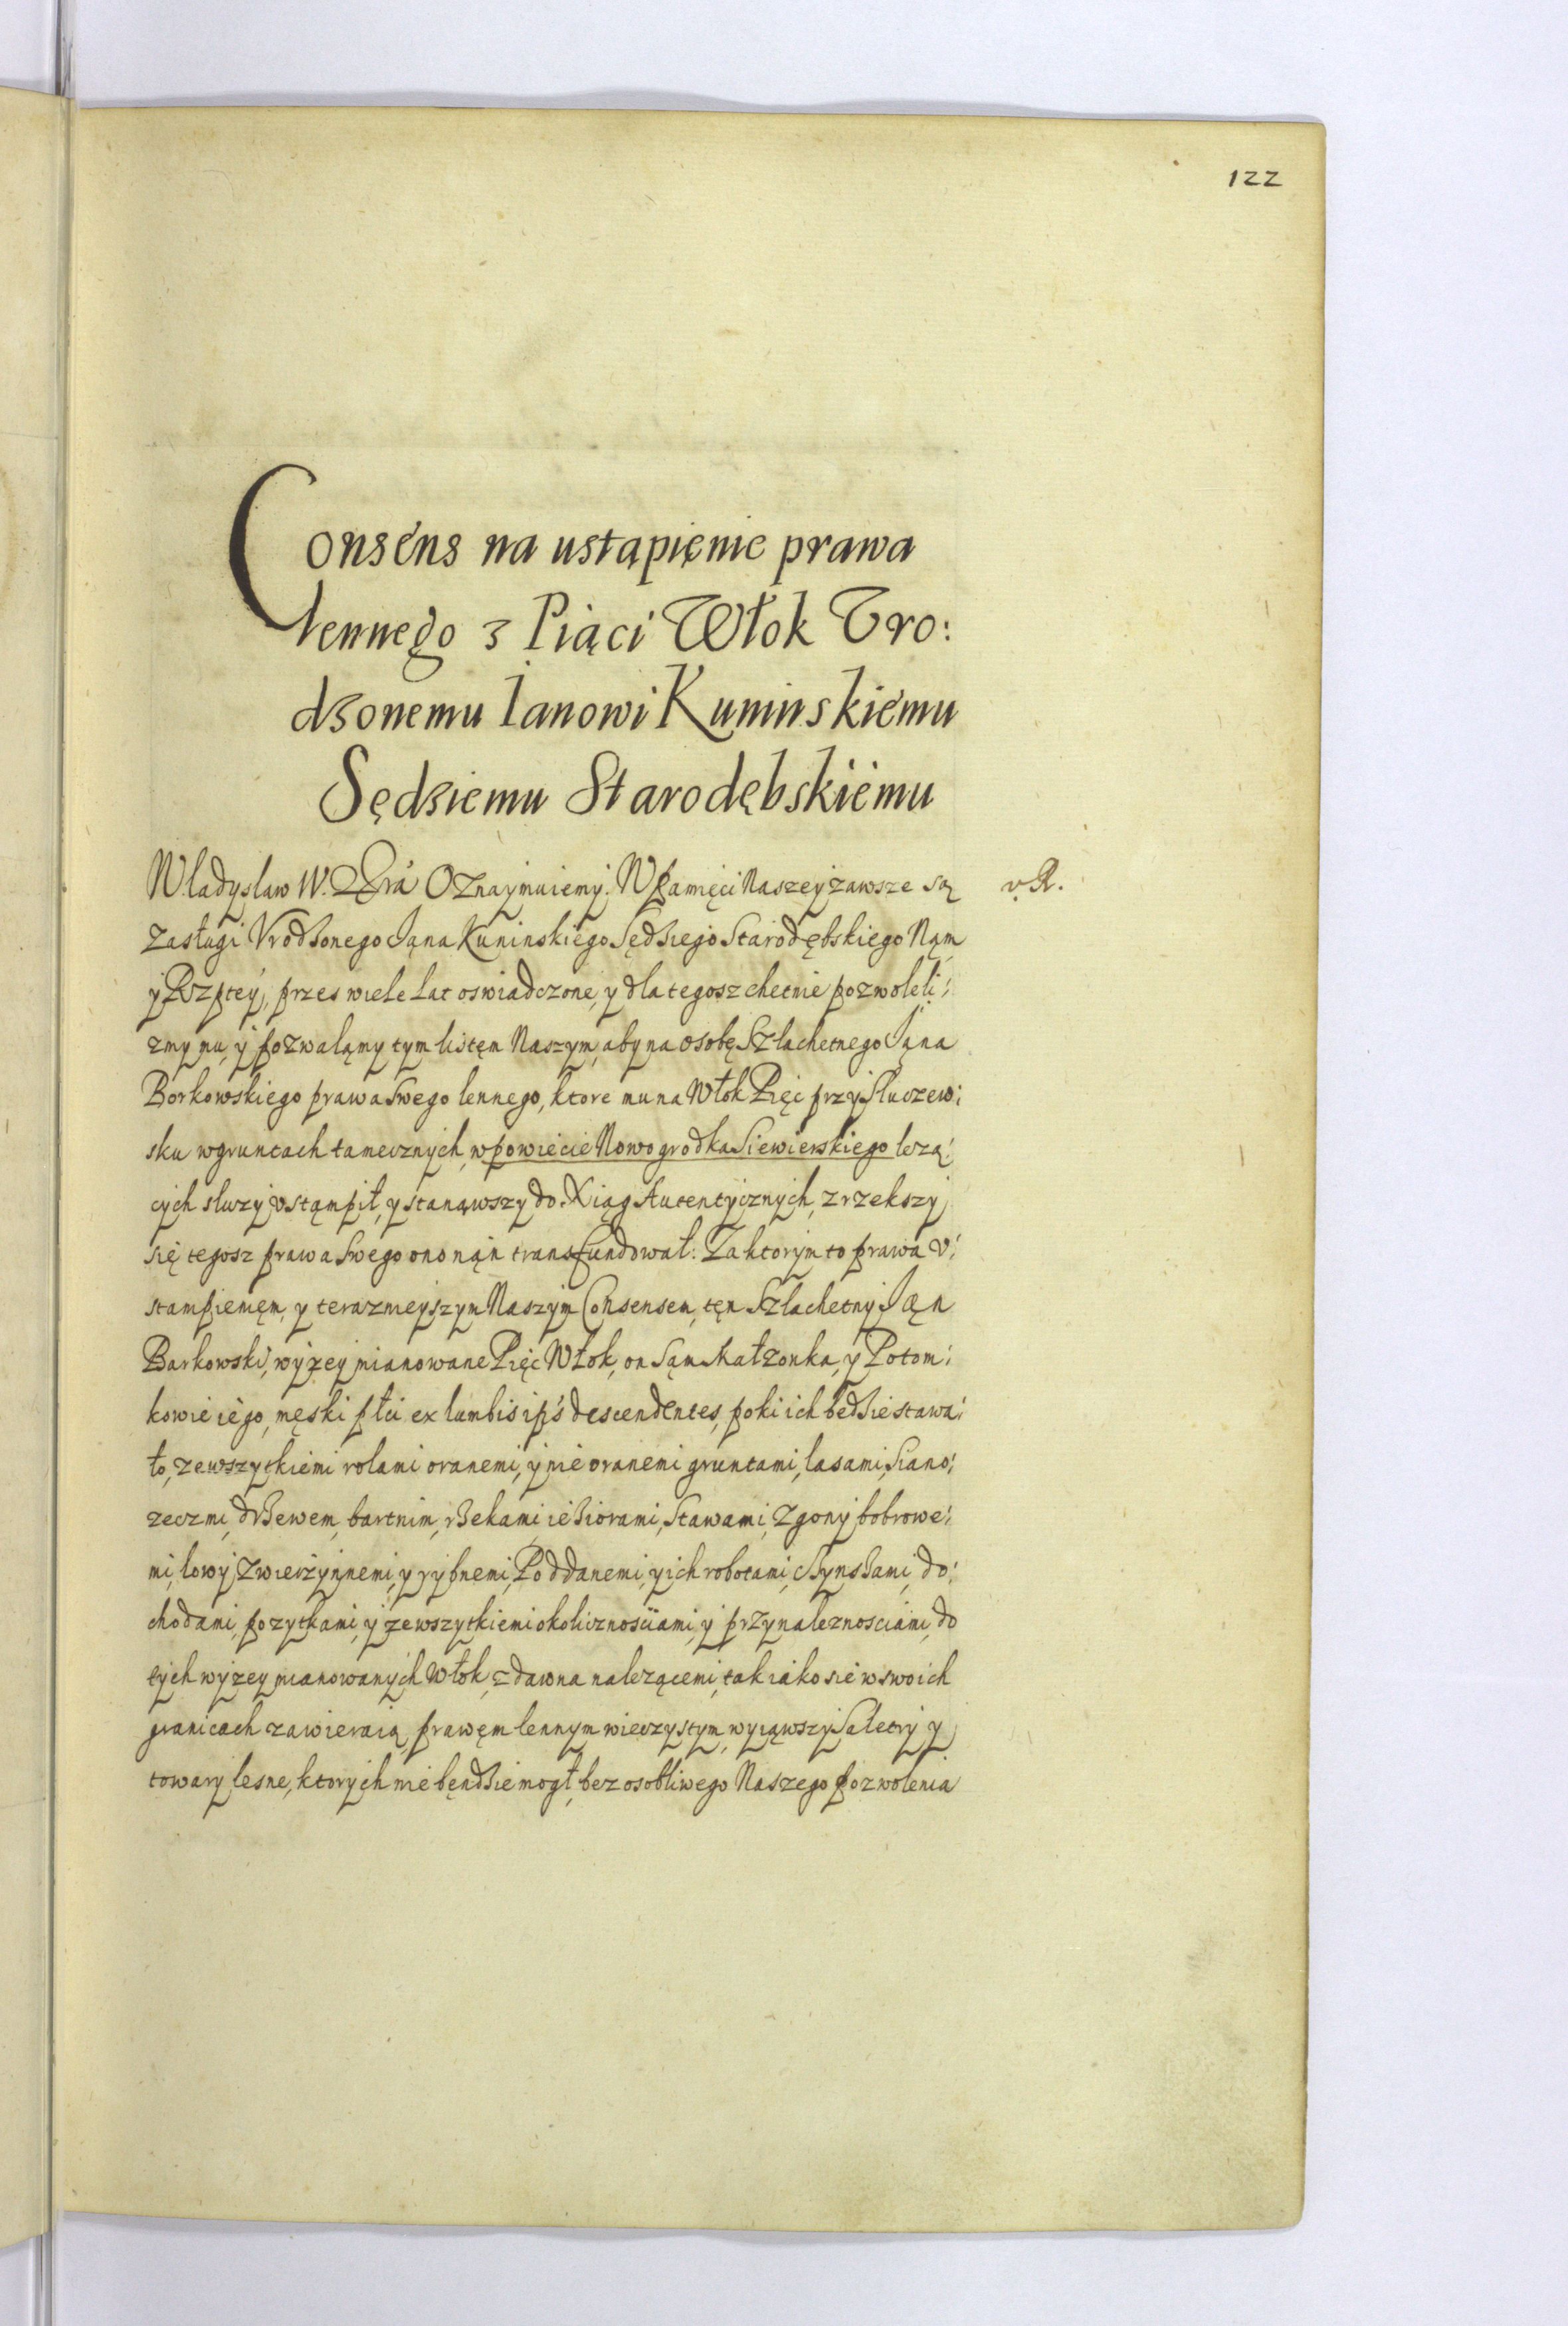 122
Consens na ustąpięnie prawa
lennego z Piąci Włok Vro:
dzonemu Ianowi Kuninskiemu
Sędziemu Starodębskiemu
Władysław IV. Oznaymuiemy. W Pamięci Naszey zawsze są
v. R.
Zasługi Vrodzonego Jąna Kuninskiego Sędziego Starodębskiego Nąm
y Rzptey, przes wiele Lat oswiadczone, y dla tegosz chetnie pozwoleli:
zmy mu, y pozwaląmy tym listęm Naszym, aby na osobę Szlachetnego Jąna
Borkowskiego prawa Swego lennego, ktore mu na Włok Pięc przy Słuczew:
sku w gruntach tamecznych, w powiecie Nowogrodka Siewierskiego leżą:
cych słuzy vstąmpił, y stanąwszy do Xiąg Autentycznych, zrzekszy
się tegosz prawa Swego ono nąn transfundował: Za ktorym to prawa v:
stampieniem, y terazniejszym Naszym Consensem, tęn Szlachetny Ją̨n
Barkowski, wyzey mianowane Pięc Włok, on Sąm Małzonka, y Potom:
kowie iego, męski płci ex lumbis ips descendentes, poki ich bedzie stawa:
ło, ze wszytkiemi rolami oranemi, y nie oranemi gruntami, lasami, Siano:
zeczmi, drzewem, bartnim, rzekami, ieziorami, Stawami, Zgony bobrowe:
mi, łowy Zwierzynnemi, y rybnemi, Poddanemi, y ich robotami, czynszami, do:
chodami, pozytkami, y ze wszytkiemi okolicznosciami, y przynaleznosciami, do
tych wyzey mianowanych Włok, z dawna nalezącemi, tak iako się w swoich
granicach zawieraią, prawęm lennym wieczystym, wyiąwszy Saletry y
towary lesne, ktorych nie będzie mogł, bez osobliwego Naszego pozwolenia